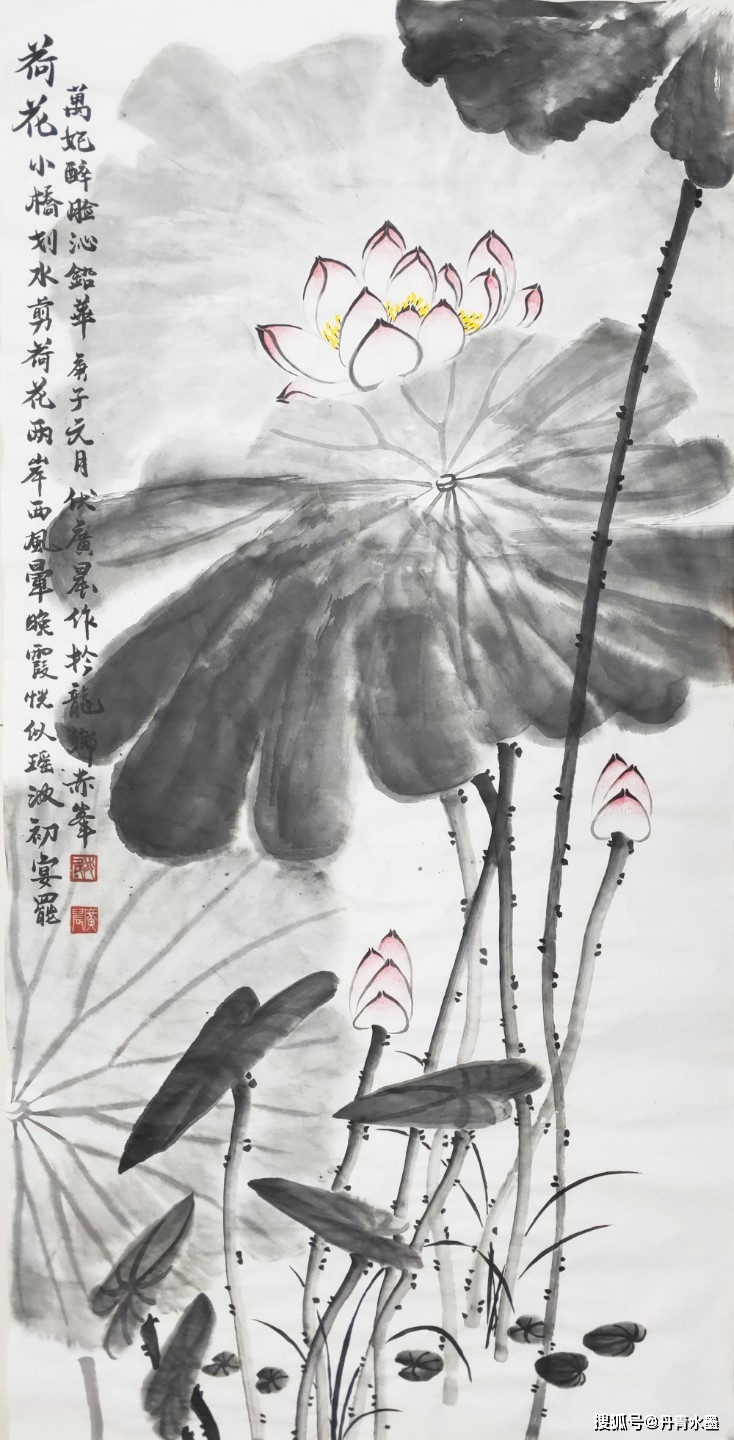 荷花小橋划水剪荷花兩岸西風暈晚霞恍似瑶池初宴罷
萬妃醉脸沁鉛華庚子元月伏廣晨作扵龍鄉赤峯
廣晨
搜狐号@丹青水墨